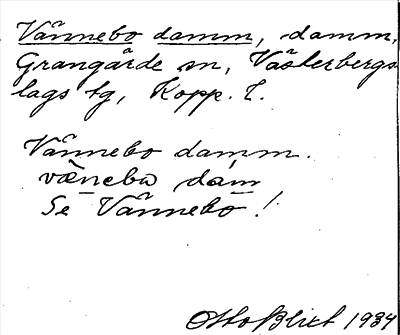 Vännebo damm, damm,
Grangärde sn, Västerbergs
lags tg, Kopp. l.
Vännebo damm.
vännebω dam
Se Vännebo!
Otto Blixt 1934